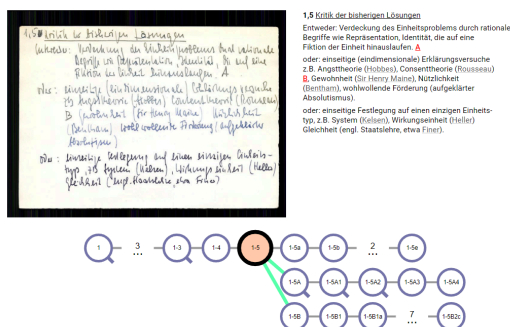 1,5 Kritik der bisherigen Lösungen
Entweder: Verdeckung des Einheitsproblems durch rationale
Begriffe wie Repräsentation, Identität, die auf eine
Fiktion der Einheit hinauslaufen. A
oder: einseitige (eindimensionale) Erklärungsversuche
z.B. Angsttheorie (Hobbes), Consenttheorie (Rousseau)
B (Gewohnheit (Sir Henry Maine) Nützlichkeit
(Bentham) wohlwollende Förderung (aufgeklärter
Absolutismus)
oder: einseitige Festlegung auf einen einzigen Einheits-
typ, z.B. System (Kelsen), Wirkungseinheit (Heller)
Gleichheit (engl. Staatslehre, etwa Finer)
1,5 Kritik der bisherigen Lösungen
Entweder: Verdeckung des Einheitsproblems durch rationale
Begriffe wie Repräsentation, Identität, die auf eine
Fiktion der Einheit hinauslaufen. A
oder: einseitige (eindimensionale) Erklärungsversuche
z.B. Angsttheorie (Hobbes), Consenttheorie (Rousseau)
B, Gewohnheit (Sir Henry Maine), Nützlichkeit
(Bentham), wohlwollende Förderung (aufgeklärter
Absolutismus).
oder: einseitige Festlegung auf einen einzigen Einheits-
typ, z.B. System (Kelsen), Wirkungseinheit (Heller)
Gleichheit (engl. Staatslehre, etwa Finer).
1 3 ... 1-3 1-4 1-5 1-5a 1-5b 2 ... 1-5e
1-5A 1-5A1 1-5A2 1-5A3 1-5A4
1-5B 1-5B1 1-5B1a 7 ... 1-5B2c